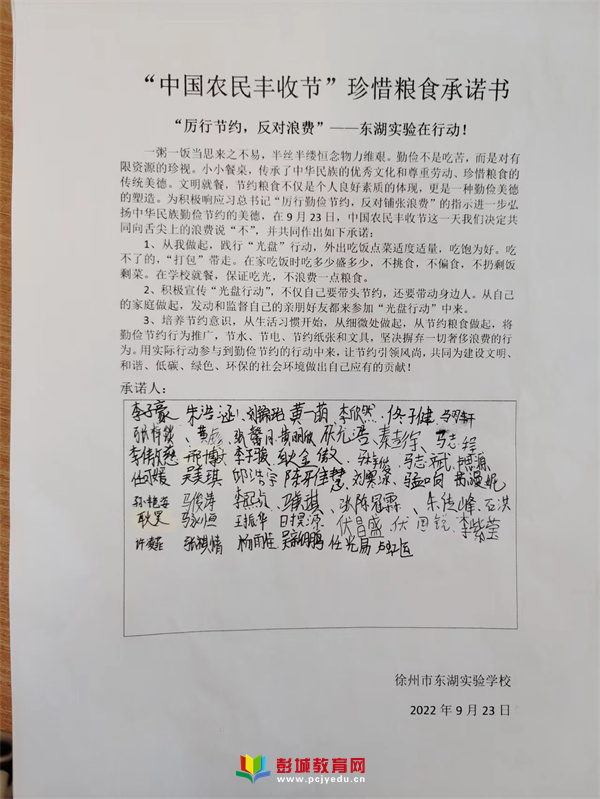 “中国农民丰收节”珍惜粮食承诺书
“厉行节约，反对浪费”——东湖实验在行动！
一粥一饭当思来之不易，半丝半缕恒念物力维艰。勤俭不是吃苦，而是对有
限资源的珍视。小小餐桌，传承了中华民族的优秀文化和尊重劳动、珍惜粮食的
传统美德。文明就餐，节约粮食不仅是个人良好素质的体现，更是一种勤俭美德
的塑造。为积极响应习总书记“厉行勤俭节约，反对铺张浪费”的指示进一步弘
扬中华民族勤俭节约的美德，在 9 月 23 日，中国农民丰收节这一天我们决定共
同向舌尖上的浪费说“不”，并共同作出如下承诺：
1、从我做起，践行“光盘”行动，外出吃饭点菜适度适量，吃饱为好。吃
不了的，“打包”带走。在家吃饭时吃多少盛多少，不挑食，不偏食，不扔剩饭
剩菜。在学校就餐，保证吃光，不浪费一点粮食。
2、积极宣传“光盘行动”，不仅自己要带头节约，还要带动身边人。从自己
的家庭做起，发动和监督自己的亲朋好友都来参加“光盘行动”中来。
3、培养节约意识，从生活习惯开始，从细微处做起，从节约粮食做起，将
勤俭节约行为推广，节水、节电、节约纸张和文具，坚决摒弃一切奢侈浪费的行
为。用实际行动参与到勤俭节约的行动中来，让节约引领风尚，共同为建设文明、
和谐、低碳、绿色、环保的社会环境做出自己应有的贡献！
承诺人：
李子豪 朱浩涵 黄一萌 李欣然 佟子健
黄彪 秦彦淳 马志程
李博
吴美琪 邱浩宇
马俊涛 张陈冠霖、朱传峰 石洪
耿昊 王振华 伏昌盛 李紫莹
张棋情 杨雨佳 吴新鹏 任光易
徐州市东湖实验学校
2022 年 9 月 23 日
彭城教育网
www.pcjyedu.cn